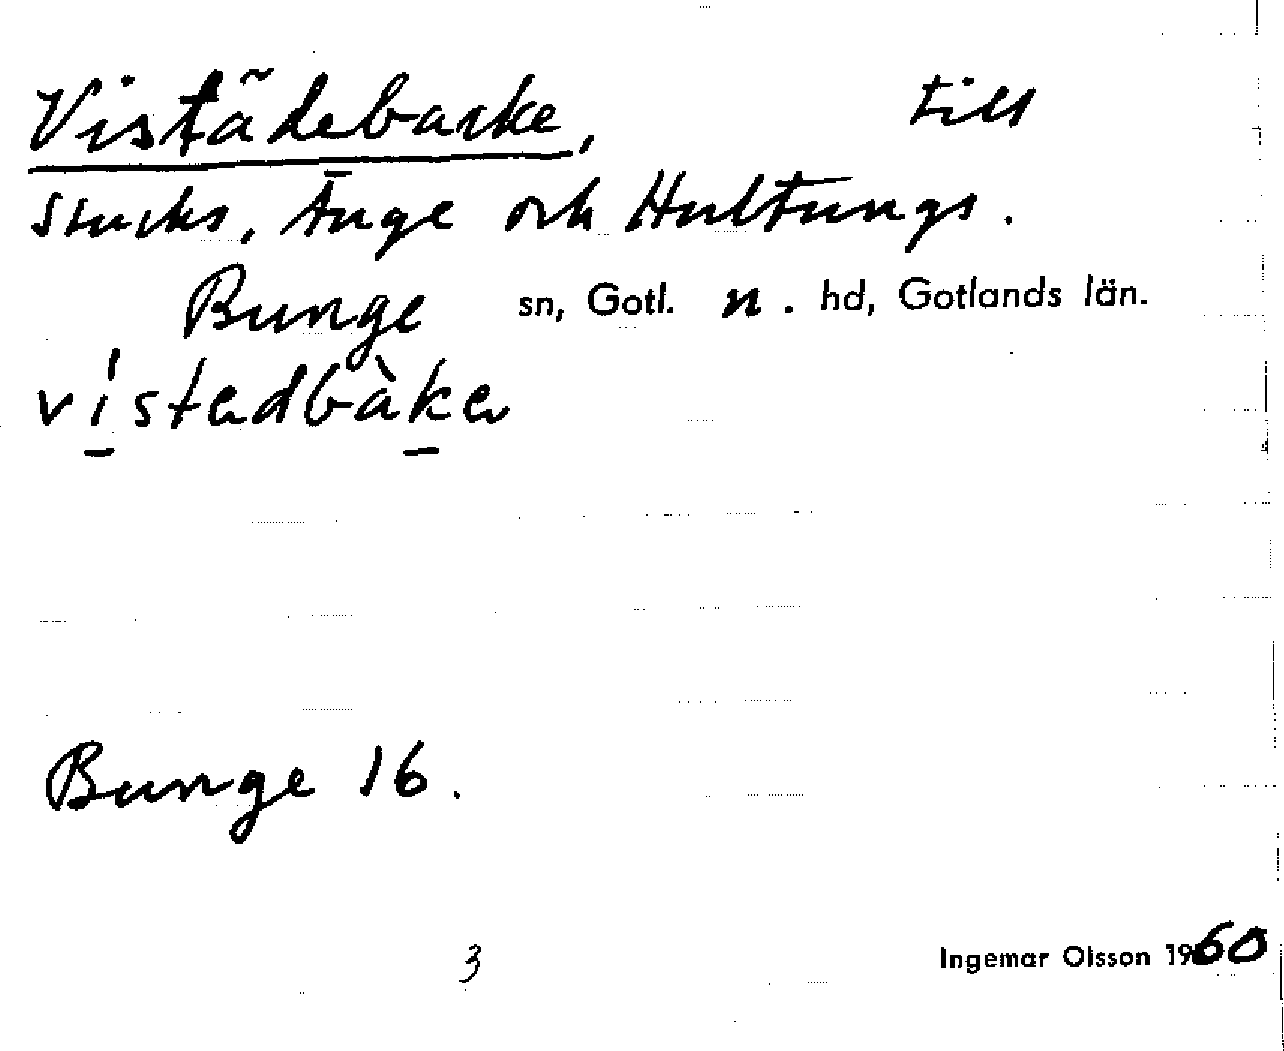 Vistädebacke, till
Stucks, Änge och Hultungs.
Bunge sn, Gotl. n. hd, Gotlands län.
vístadbàka
Bunge 16.
3
Ingemar Olsson 1960